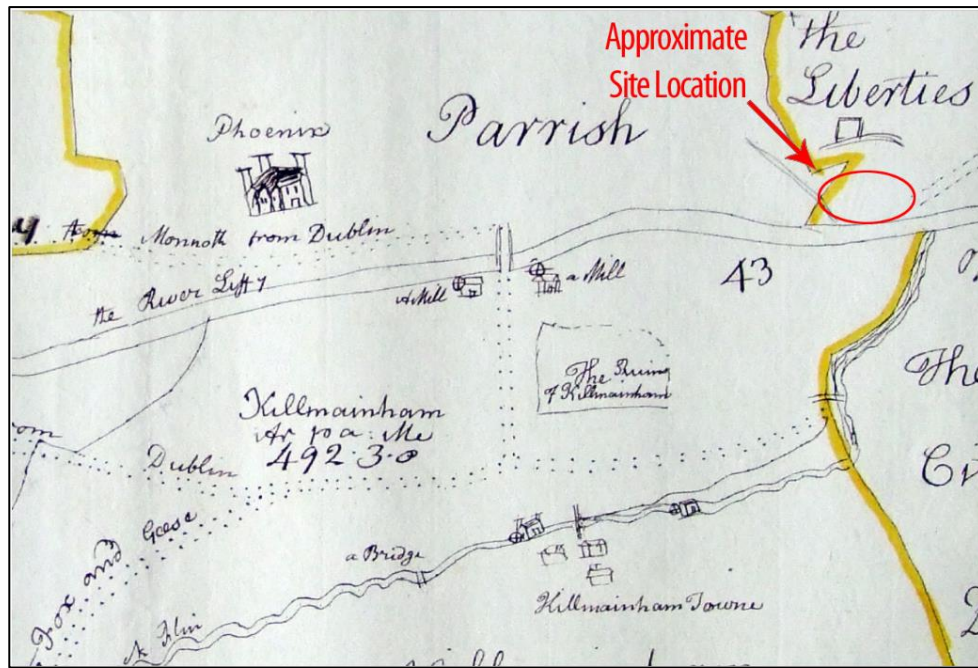 Approximate
Site Location
the
Liberties
Phoenix
Parrish
Monnoth from Dublin
the River Liffy
A Mill
a Mill
43
The Ruins
of Killmainham
The
Killmainham
492 . 3 . 0
Dublin
Fox and Geese
a Bridge
Killmainham Towne